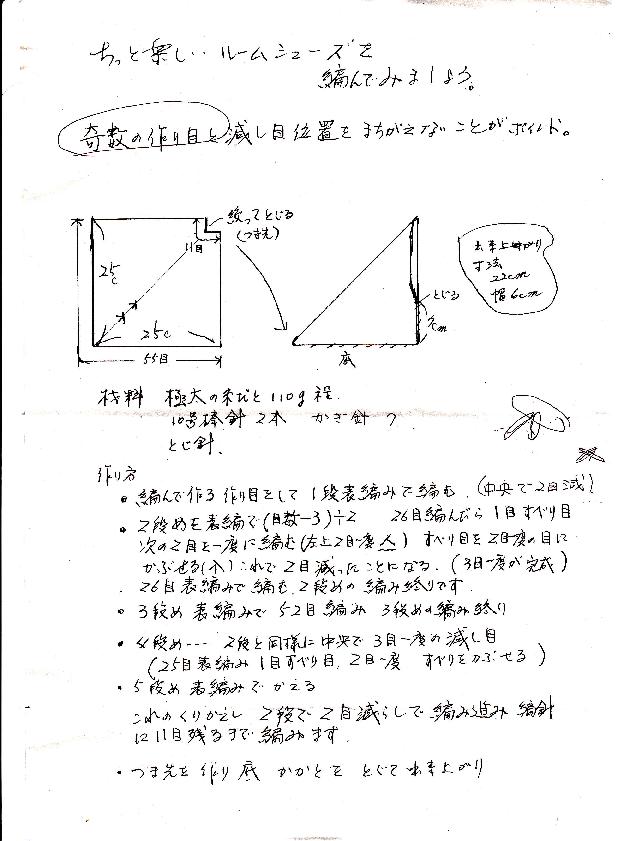 ちっと楽しい・・ルームシューズを
編んでみましょう。
奇数の作り目と減し目位置をまちがえないことがポイント。
絞ってとじる
(つま先)
11目
25c
25c
55目
とじる
底
出来上がり
寸法
22cm
幅6cm
材料 極太の糸 110g程
10号棒針 2本 かぎ針
とじ針
作り方
・編んで作る作り目をして 1段表編みで編む (中央で2目減)
・2段めも表編で(目数−3)÷2 26目編んだら 1目すべり目
次の2目を一度に編む(左上2目一度 人) すべり目を2目一度の目に
かぶせる(入) これで2目減ったことになる。(3目一度が完成)
26目表編みで編む 2段めの編み終りです
・3段め 表編みで 52目編み 3段めの編み終り
・4段め… 2段と同様に中央で 3目一度の減し目
(25目表編み 1目すべり目、2目一度 すべりをかぶせる)
・5段め 表編みで かえる
これのくりかえし 2段で2目減らしで編み進み 編針
に11目残るまで編みます.
・つま先を作り 底 かかとを とじて出来上がり